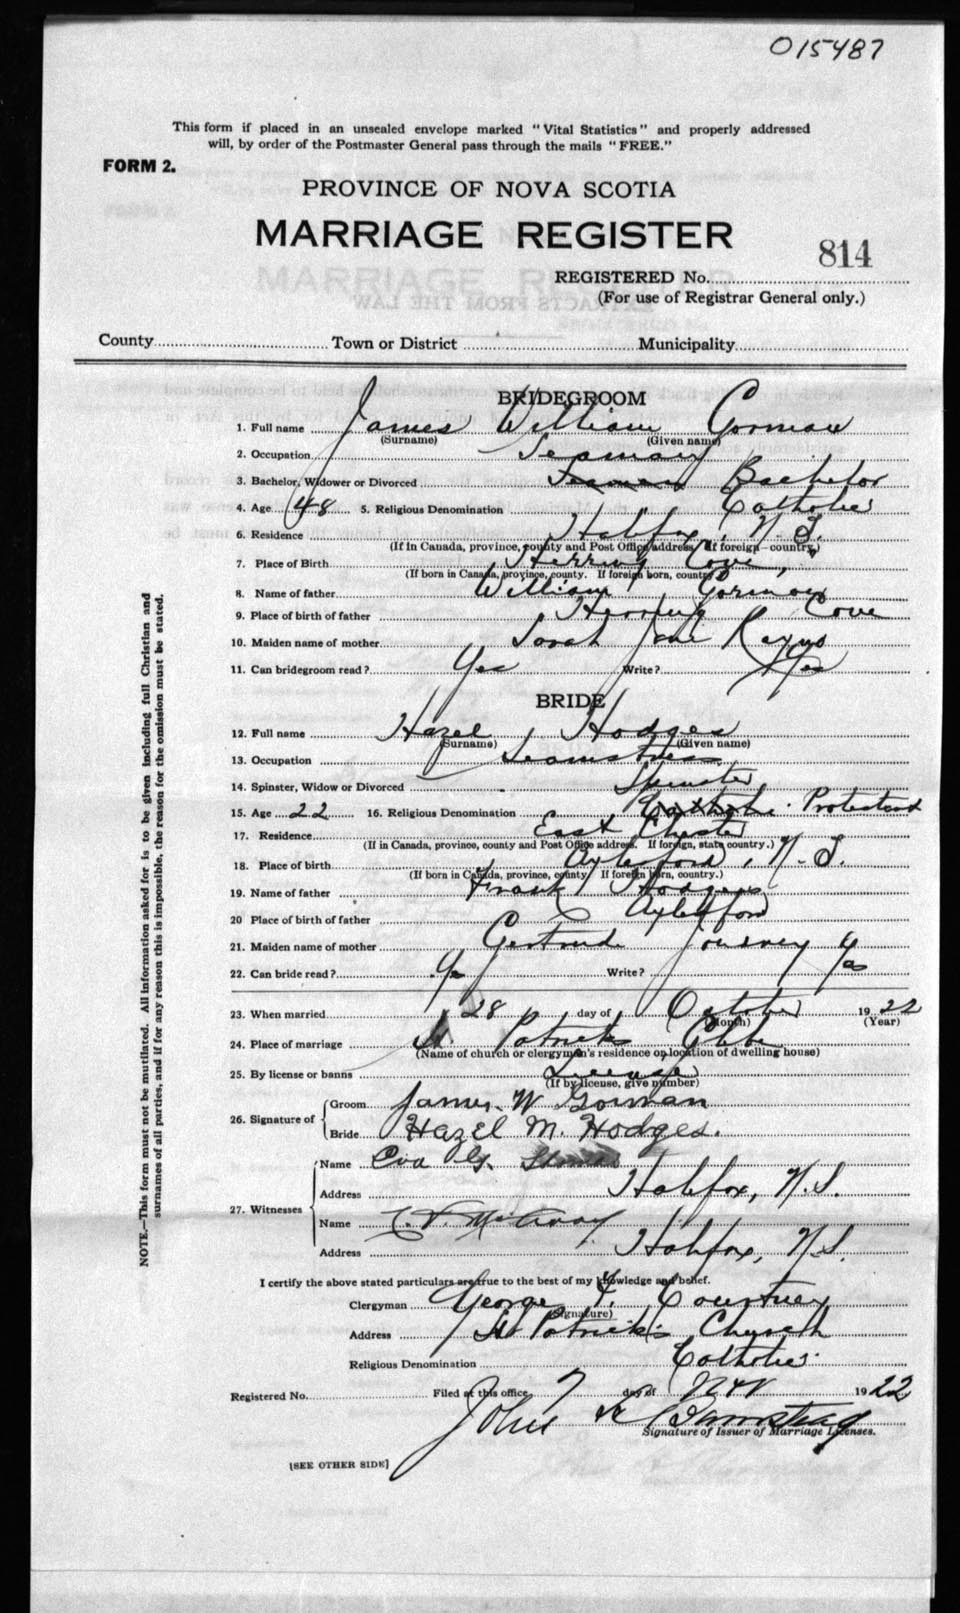 015487
This form if placed in an unsealed envelope marked "Vital Statistics" and properly addressed
will, by order of the Postmaster General pass through the mails "FREE."
FORM 2.
PROVINCE OF NOVA SCOTIA
MARRIAGE REGISTER
814
REGISTERED No.
(For use of Registrar General only.)
County Town or District Municipality
BRIDEGROOM
1. Full name James William Gorman
(Surname) (Given name)
2. Occupation Seaman
3. Bachelor, Widower or Divorced Seaman Bachelor
4. Age 48 5. Religious Denomination Catholic
6. Residence Halifax, N.S.
(If in Canada, province, county and Post Office address. If foreign—country.)
7. Place of Birth Herring Cove,
(If born in Canada, province, county. If foreign born, country)
8. Name of father William Gorman
9. Place of birth of father Herring Cove
10. Maiden name of mother Sarah Jane
11. Can bridegroom read? Yes Write? Yes
BRIDE
12. Full name Hazel Hodges
(Surname) (Given name)
13. Occupation Seamstress
14. Spinster, Widow or Divorced Spinster
15. Age 22 16. Religious Denomination Catholic Protestant
17. Residence East Chester
(If in Canada, province, county and Post Office address. If foreign, state country.)
18. Place of birth Aylesford, N.S.
(If born in Canada, province, county. If foreign born, country.)
19. Name of father Frank Hodges
20 Place of birth of father Aylesford
21. Maiden name of mother Gertrude
22. Can bride read? Yes Write? Yes
23. When married 28 day of October 1922
(Month) (Year)
24. Place of marriage St Patricks Glebe
(Name of church or clergyman's residence or location of dwelling house)
25. By license or banns License
(If by license, give number)
26. Signature of Groom James. W Gorman
Bride Hazel M. Hodges.
27. Witnesses Name Eva G.
Address Halifax, N.S.
Name
Address Halifax, N.S.
I certify the above stated particulars are true to the best of my knowledge and belief.
Clergyman George F. Courtney
(Signature)
Address St Patrick's Church
Religious Denomination Catholic
Registered No. Filed at this office 7 day of Nov 1922
John
Signature of Issuer of Marriage Licenses.
[SEE OTHER SIDE]
NOTE.—This form must not be mutilated. All information asked for is to be given including full Christian and
surnames of all parties, and if for any reason this is impossible, the reason for the omission must be stated.